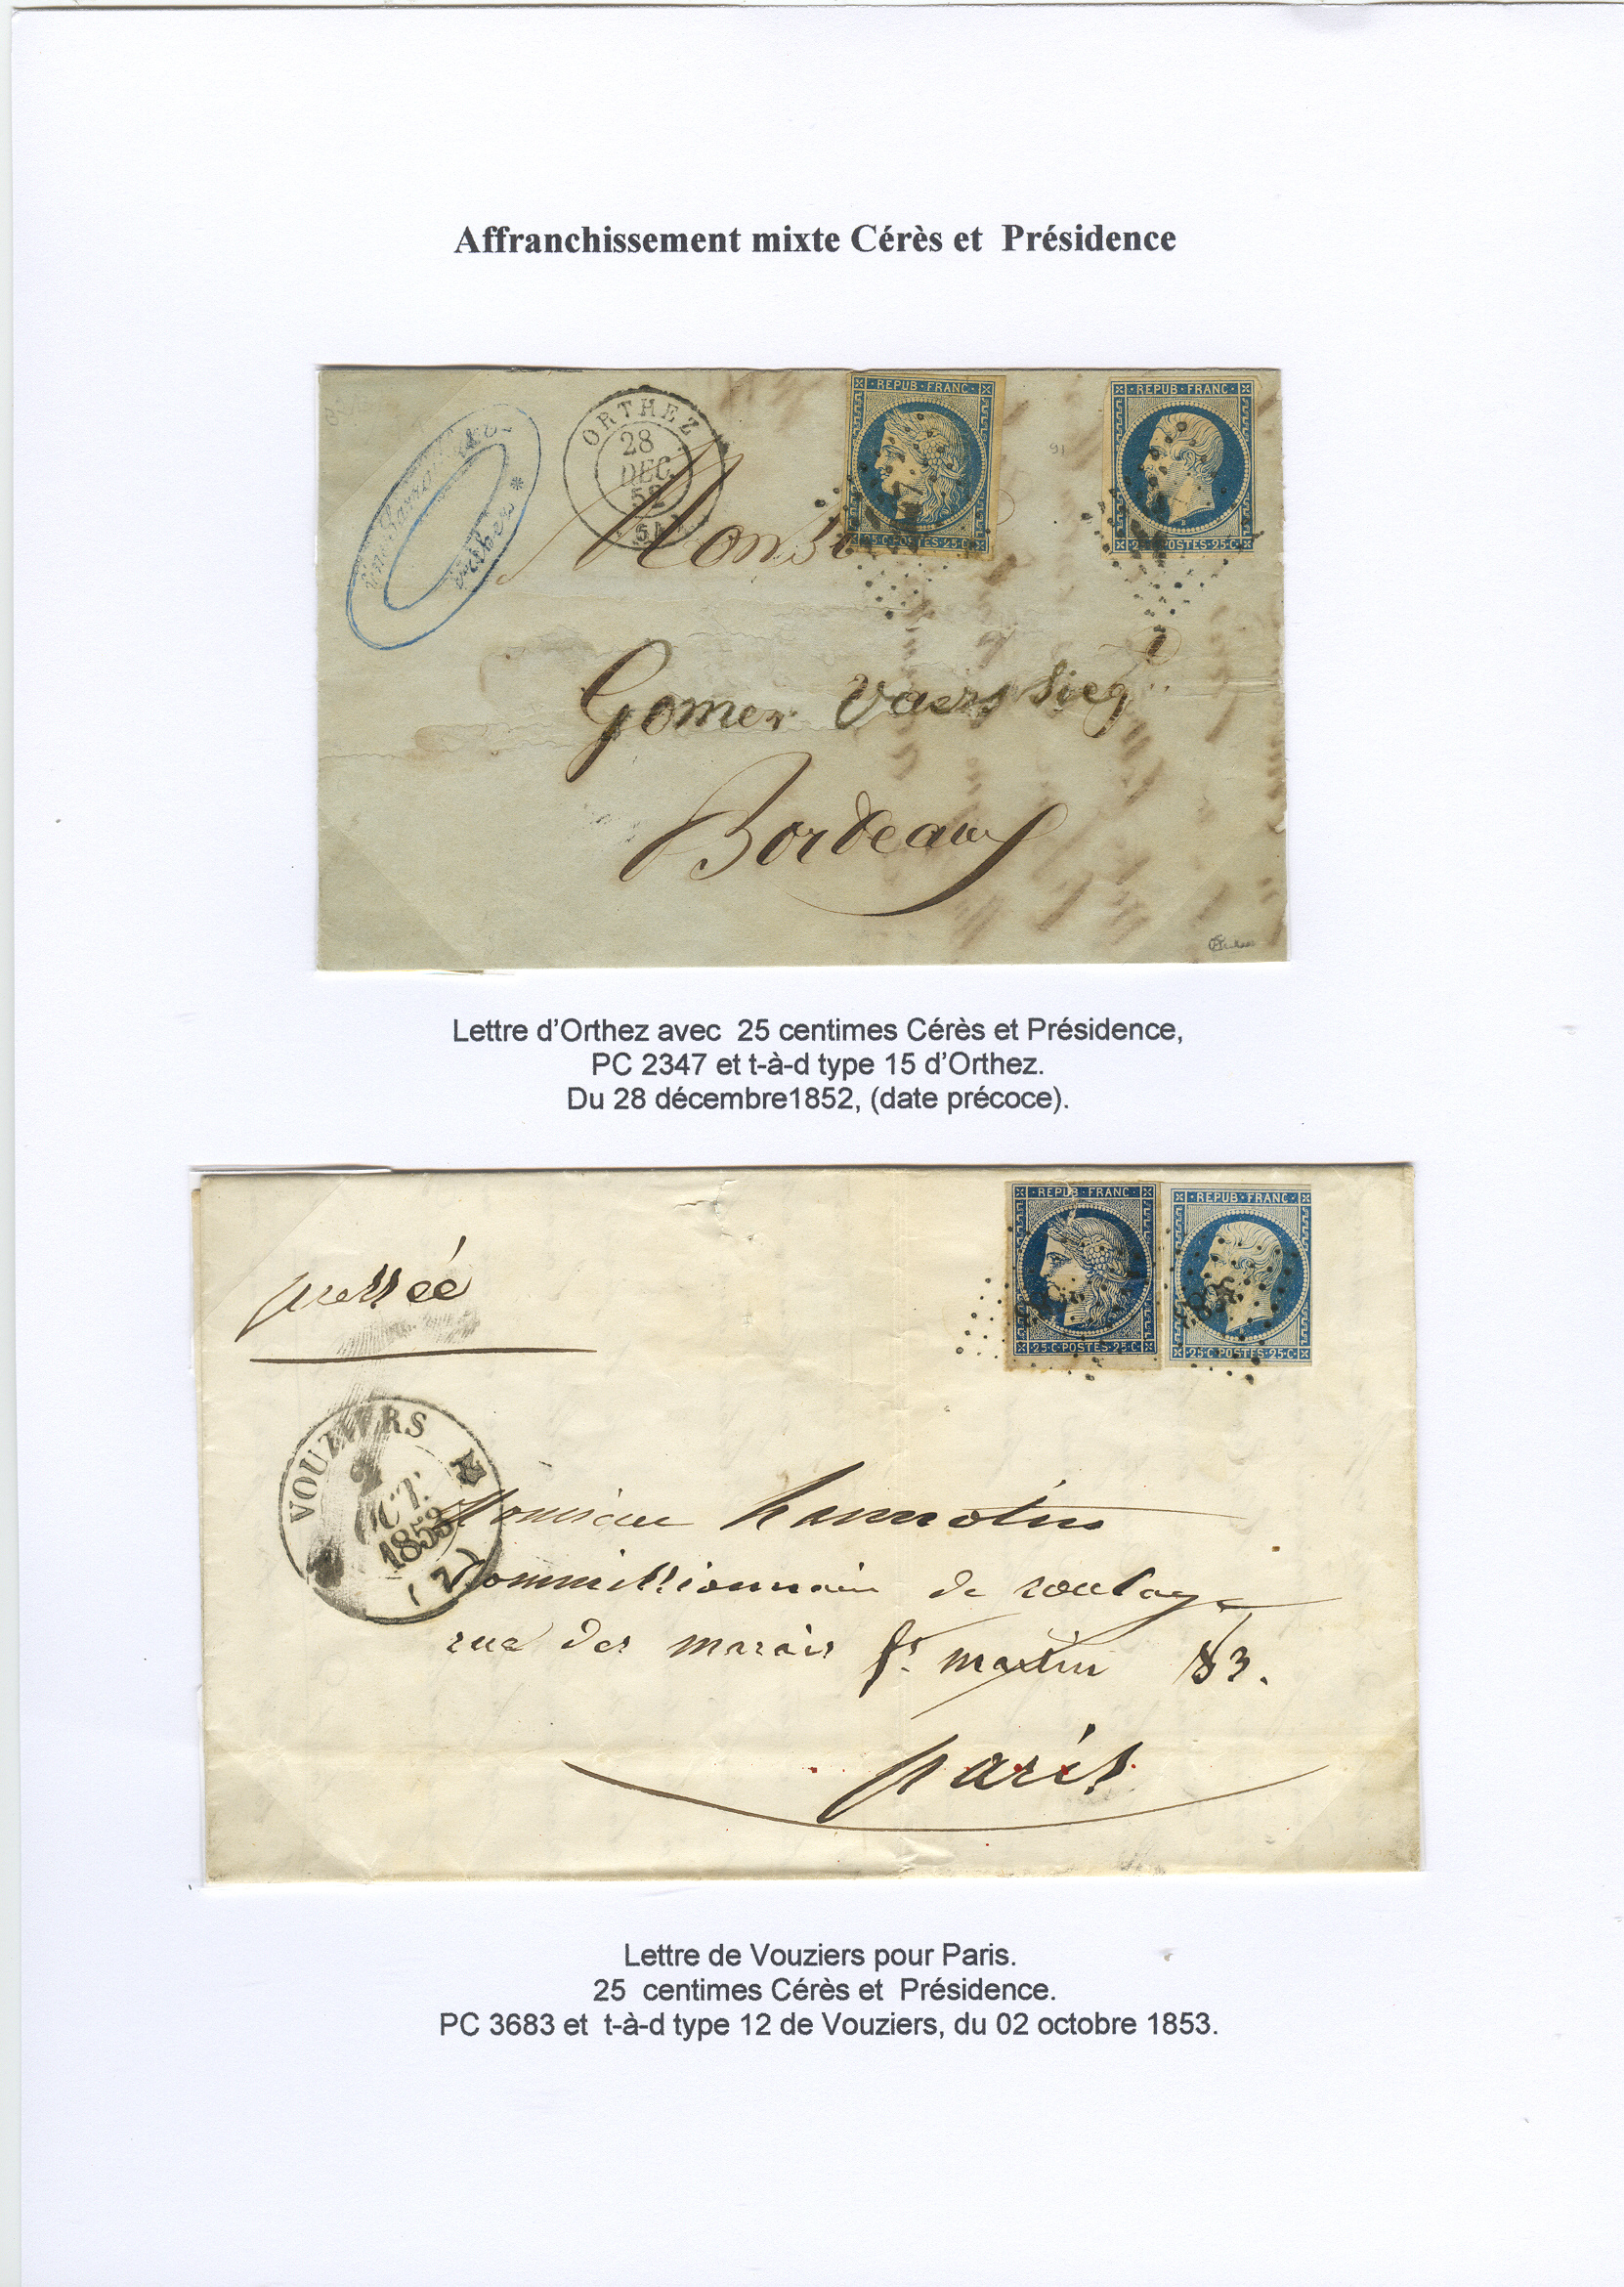 Affranchissement mixte Cérès et Présidence
ORTHEZ
28
DEC
52
REPUB·FRANC·
25·C·POSTES·25·C·
REPUB·FRANC·
25·C·POSTES·25·C·
Gomer Vaerssieg
Bordeaux
Lettre d'Orthez avec 25 centimes Cérès et Présidence,
PC 2347 et t-à-d type 15 d'Orthez.
Du 28 décembre1852, (date précoce).
REPUB·FRANC·
25·C·POSTES·25·C·
REPUB·FRANC·
25·C·POSTES·25·C·
pressée
VOUZIERS
2
OCT.
1853
(7)
Monsieur hannotin
Commissionnaire de roulage
rue des marais St. martin 83.
paris
Lettre de Vouziers pour Paris.
25 centimes Cérès et Présidence.
PC 3683 et t-à-d type 12 de Vouziers, du 02 octobre 1853.